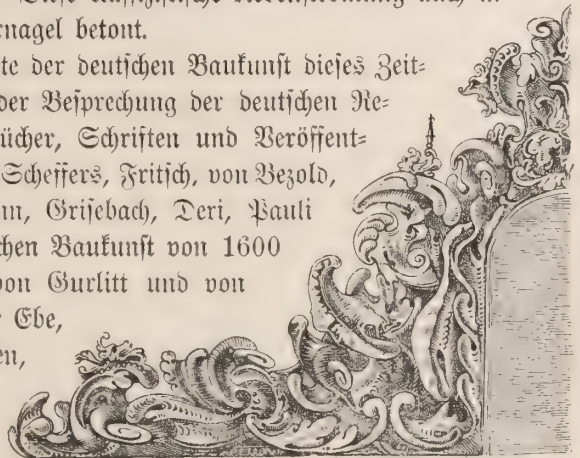 rnagel betont.
te der deutschen Baukunst dieses Zeit=
der Besprechung der deutschen Re=
ücher, Schriften und Veröffent=
Scheffers, Fritsch, von Bezold,
nn, Grisebach, Deri, Pauli
chen Baukunst von 1600
von Gurlitt und von
Ebe,
en,